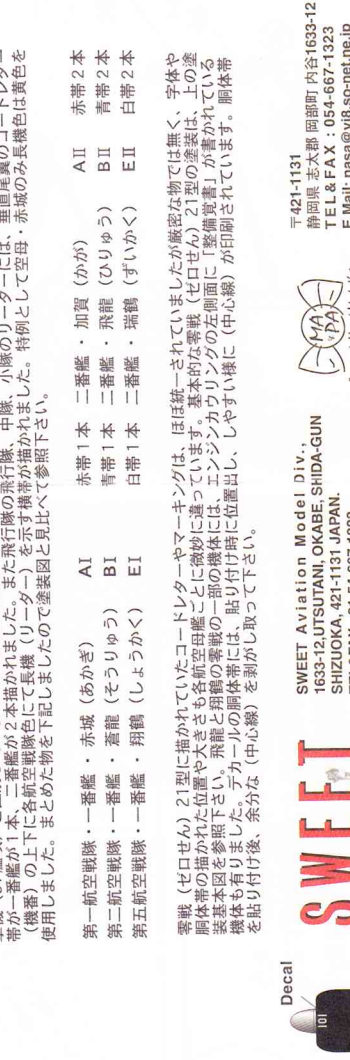 帯が一番艦が1本、二番艦が2本描かれました。また飛行隊の飛行隊、中隊、小隊のリーダーには、垂直尾翼のコードレター
（機番）の上下に各航空戦隊色にて長機（リーダー）を示す横帯が描かれました。特例として空母・赤城のみ長機色は黄色を
使用しました。まとめた物を下記しましたので塗装図と見比べて参照下さい。
第一航空戦隊・一番艦・赤城（あかぎ） AI 赤帯1本 二番艦・加賀（かが） AII 赤帯2本
第二航空戦隊・一番艦・蒼龍（そうりゅう） BI 青帯1本 二番艦・飛龍（ひりゅう） BII 青帯2本
第五航空戦隊・一番艦・翔鶴（しょうかく） EI 白帯1本 二番艦・瑞鶴（ずいかく） EII 白帯2本
零戦（ゼロせん）21型に描かれていたコードレターやマーキングは、ほぼ統一されていましたが厳密な物では無く、字体や
胴体帯の描かれた位置や大きさも各航空母艦ごとに微妙に違っています。基本的な零戦（ゼロせん）21型の塗装は、上の塗
装基本図を参照下さい。飛龍と翔鶴の零戦の一部の機体には、エンジンカウリングの左側面に「整備覚書」が書かれている
機体も有りました。デカールの胴体帯には、貼り付け時に位置出し、しやすい様に（中心線）が印刷されています。胴体帯
を貼り付け後、余分な（中心線）を剥がし取って下さい。
Decal
101
SWEET
SWEET Aviation Model Div.,
1633-12,UTSUTANI, OKABE, SHIDA-GUN
SHIZUOKA, 421-1131 JAPAN.
MA
PA
〒421-1131
静岡県 志太郡 岡部町 内谷1633-12
TEL&FAX：054-667-1323
E Mail: nasa@vj8.so-net.ne.jp